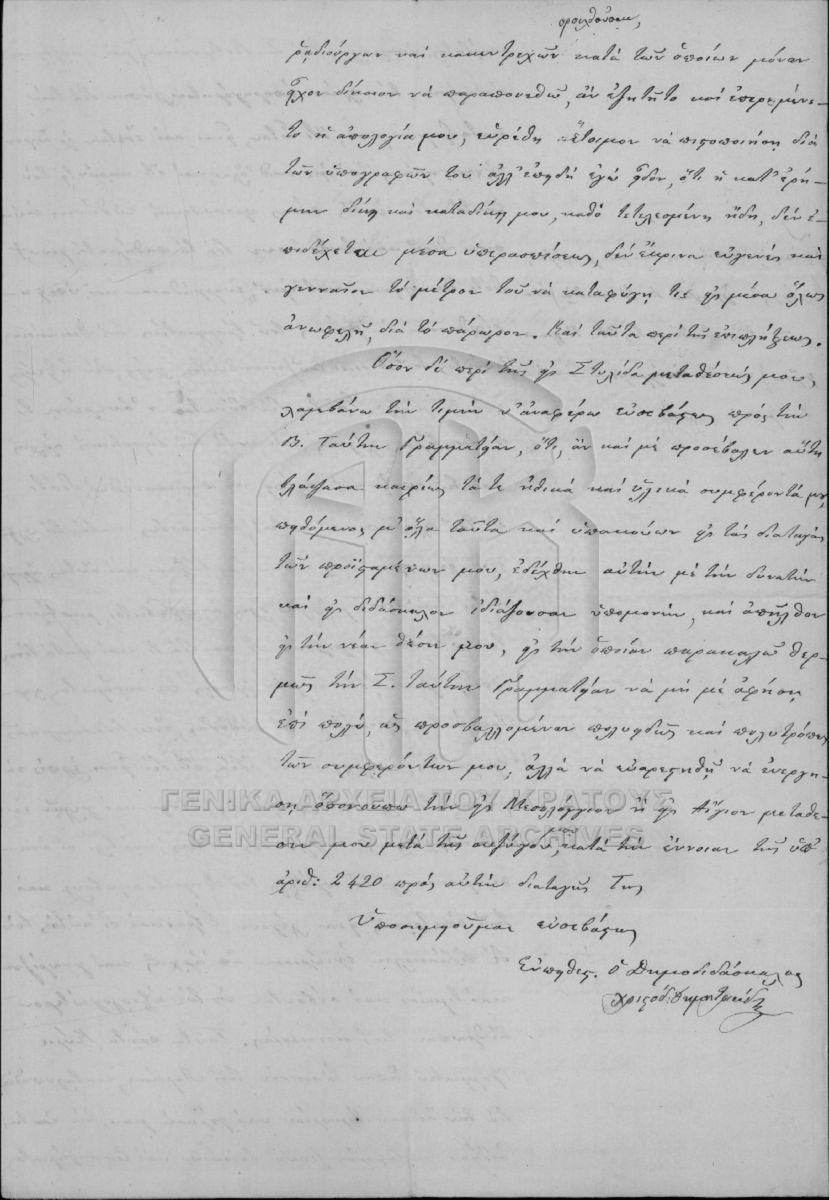 προϋποθέσεις,
ῥᾳδιούργων καὶ κακεντρεχῶν κατὰ τῶν ὁποίων μόνον
εἶχον δίκαιον νὰ παραπονεθῶ, ἂν ἐζητεῖτο καὶ ἐπεριμένε-
το ἡ ἀπολογία μου, εὑρέθη ἕτοιμον νὰ πιστοποιήσῃ διὰ
τῶν ὑπογραφῶν του ἀλλ' ἐπειδὴ ἐγὼ εἶδον, ὅτι ἡ κατ' ἐρή-
μην δίκη καὶ καταδίκη μου, καθὸ τετελεσμένη ἤδη, δὲν ἐ-
πιδέχεται μέσα ὑπερασπίσεως, δὲν ἔκρινα εὐγενὲς καὶ
γενναῖον τὸ μέτρον τοῦ νὰ καταφύγῃ τις εἰς μέσα ὅλως
ἀνωφελῆ, διὰ τὸ πάρωρον. Καὶ ταῦτα περὶ τῆς ἐπιπλήξεως.
Ὅσον δὲ περὶ τῆς εἰς Στυλίδα μεταθέσεώς μου,
λαμβάνω τὴν τιμὴν ν' ἀναφέρω εὐσεβάστως πρὸς τὴν
Β. Ταύτην Γραμματείαν, ὅτι, ἂν καὶ μὲ προσέβαλεν αὕτη
βλάψασα καιρίως τά τε ἠθικὰ καὶ ὑλικὰ συμφέροντά μου,
πειθόμενος μ' ὅλα ταῦτα καὶ ὑπακούων εἰς τὰς διαταγὰς
τῶν προϊσταμένων μου, ἐδέχθην αὐτὴν μὲ τὴν δυνατὴν
καὶ εἰς διδάσκαλον ἰδιάζουσαν ὑπομονήν, καὶ ἀπῆλθον
εἰς τὴν νέαν θέσιν μου, εἰς τὴν ὁποίαν παρακαλῶ θερ-
μῶς τὴν Σ. ταύτην Γραμματείαν νὰ μὴ μὲ ἀφήσῃ
ἐπὶ πολύ, ὡς προσβαλλομένων πολυειδῶς καὶ πολυτρόπως
τῶν συμφερόντων μου, ἀλλὰ νὰ εὐαρεστηθῇ νὰ ἐνεργή-
σῃ ὅσον οὔπω τὴν εἰς Μεσολόγγιον ἢ εἰς Αἴγιον μετάθε-
σίν μου μετὰ τῆς συζύγου μου κατὰ τὴν ἔννοιαν τῆς ὑπ'
ἀριθ: 2420 πρὸς αὐτὴν διαταγῆς Της
Ὑποσημειοῦμαι εὐσεβάστως
Εὐπειθής. Ὁ Δημοδιδάσκαλος
Χριστόδ. Δημητριάδης
ΓΕΝΙΚΑ ΑΡΧΕΙΑ ΤΟΥ ΚΡΑΤΟΥΣ
GENERAL STATE ARCHIVES